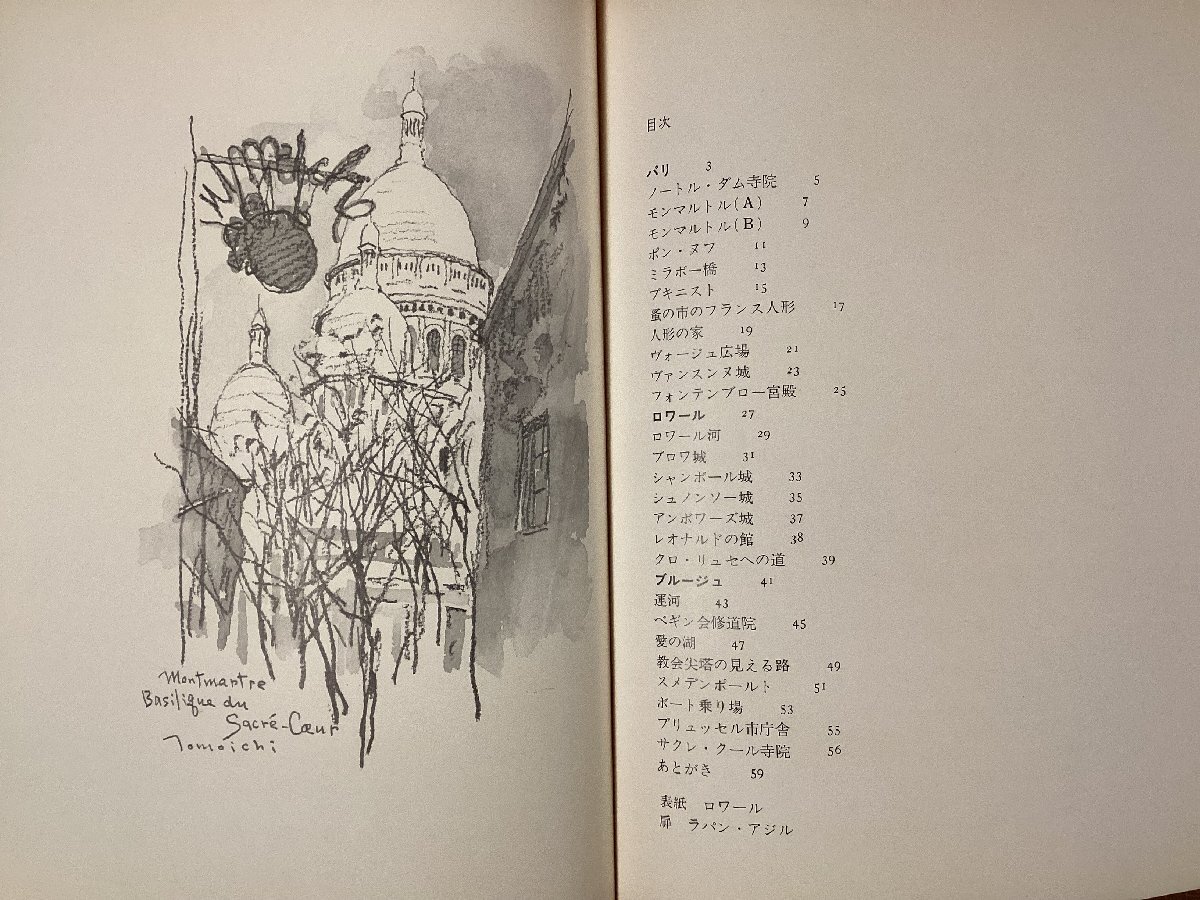 Montmartre
Basilique du
Sacré-Cœur
Tomoichi
目次
パリ 3
ノートル・ダム寺院 5
モンマルトル(A) 7
モンマルトル(B) 9
ポン・ヌフ 11
ミラボー橋 13
ブキニスト 15
蚤の市のフランス人形 17
人形の家 19
ヴォージュ広場 21
ヴァンスンヌ城 23
フォンテンブロー宮殿 25
ロワール 27
ロワール河 29
ブロワ城 31
シャンボール城 33
シュノンソー城 35
アンボワーズ城 37
レオナルドの館 38
クロ・リュセへの道 39
ブルージュ 41
運河 43
ベギン会修道院 45
愛の湖 47
教会尖塔の見える路 49
スメデンポールト 51
ボート乗り場 53
ブリュッセル市庁舎 55
サクレ・クール寺院 56
あとがき 59
表紙 ロワール
扉 ラパン・アジル